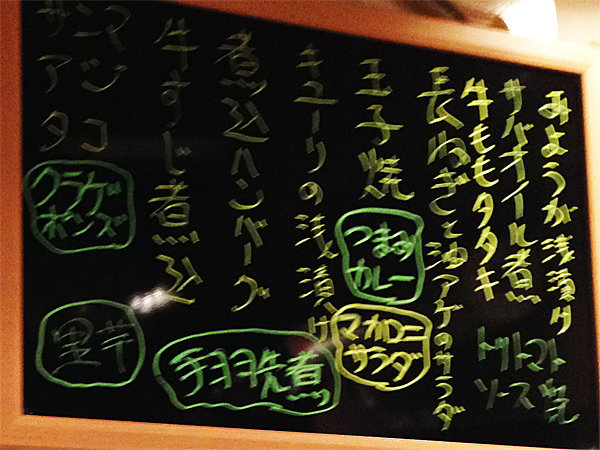 みようが浅漬ケ
サケオイル煮
牛ももタタキ
トマト
ソース
長ねぎと油アゲのサラダ
玉子焼
つまみ
カレー
マカロニ
サラダ
キューリの浅漬ケ
煮込ハンバーグ
牛すじ煮込
手羽先煮
サンマ
アジ
タコ
クラゲ
ポンズ
里芋